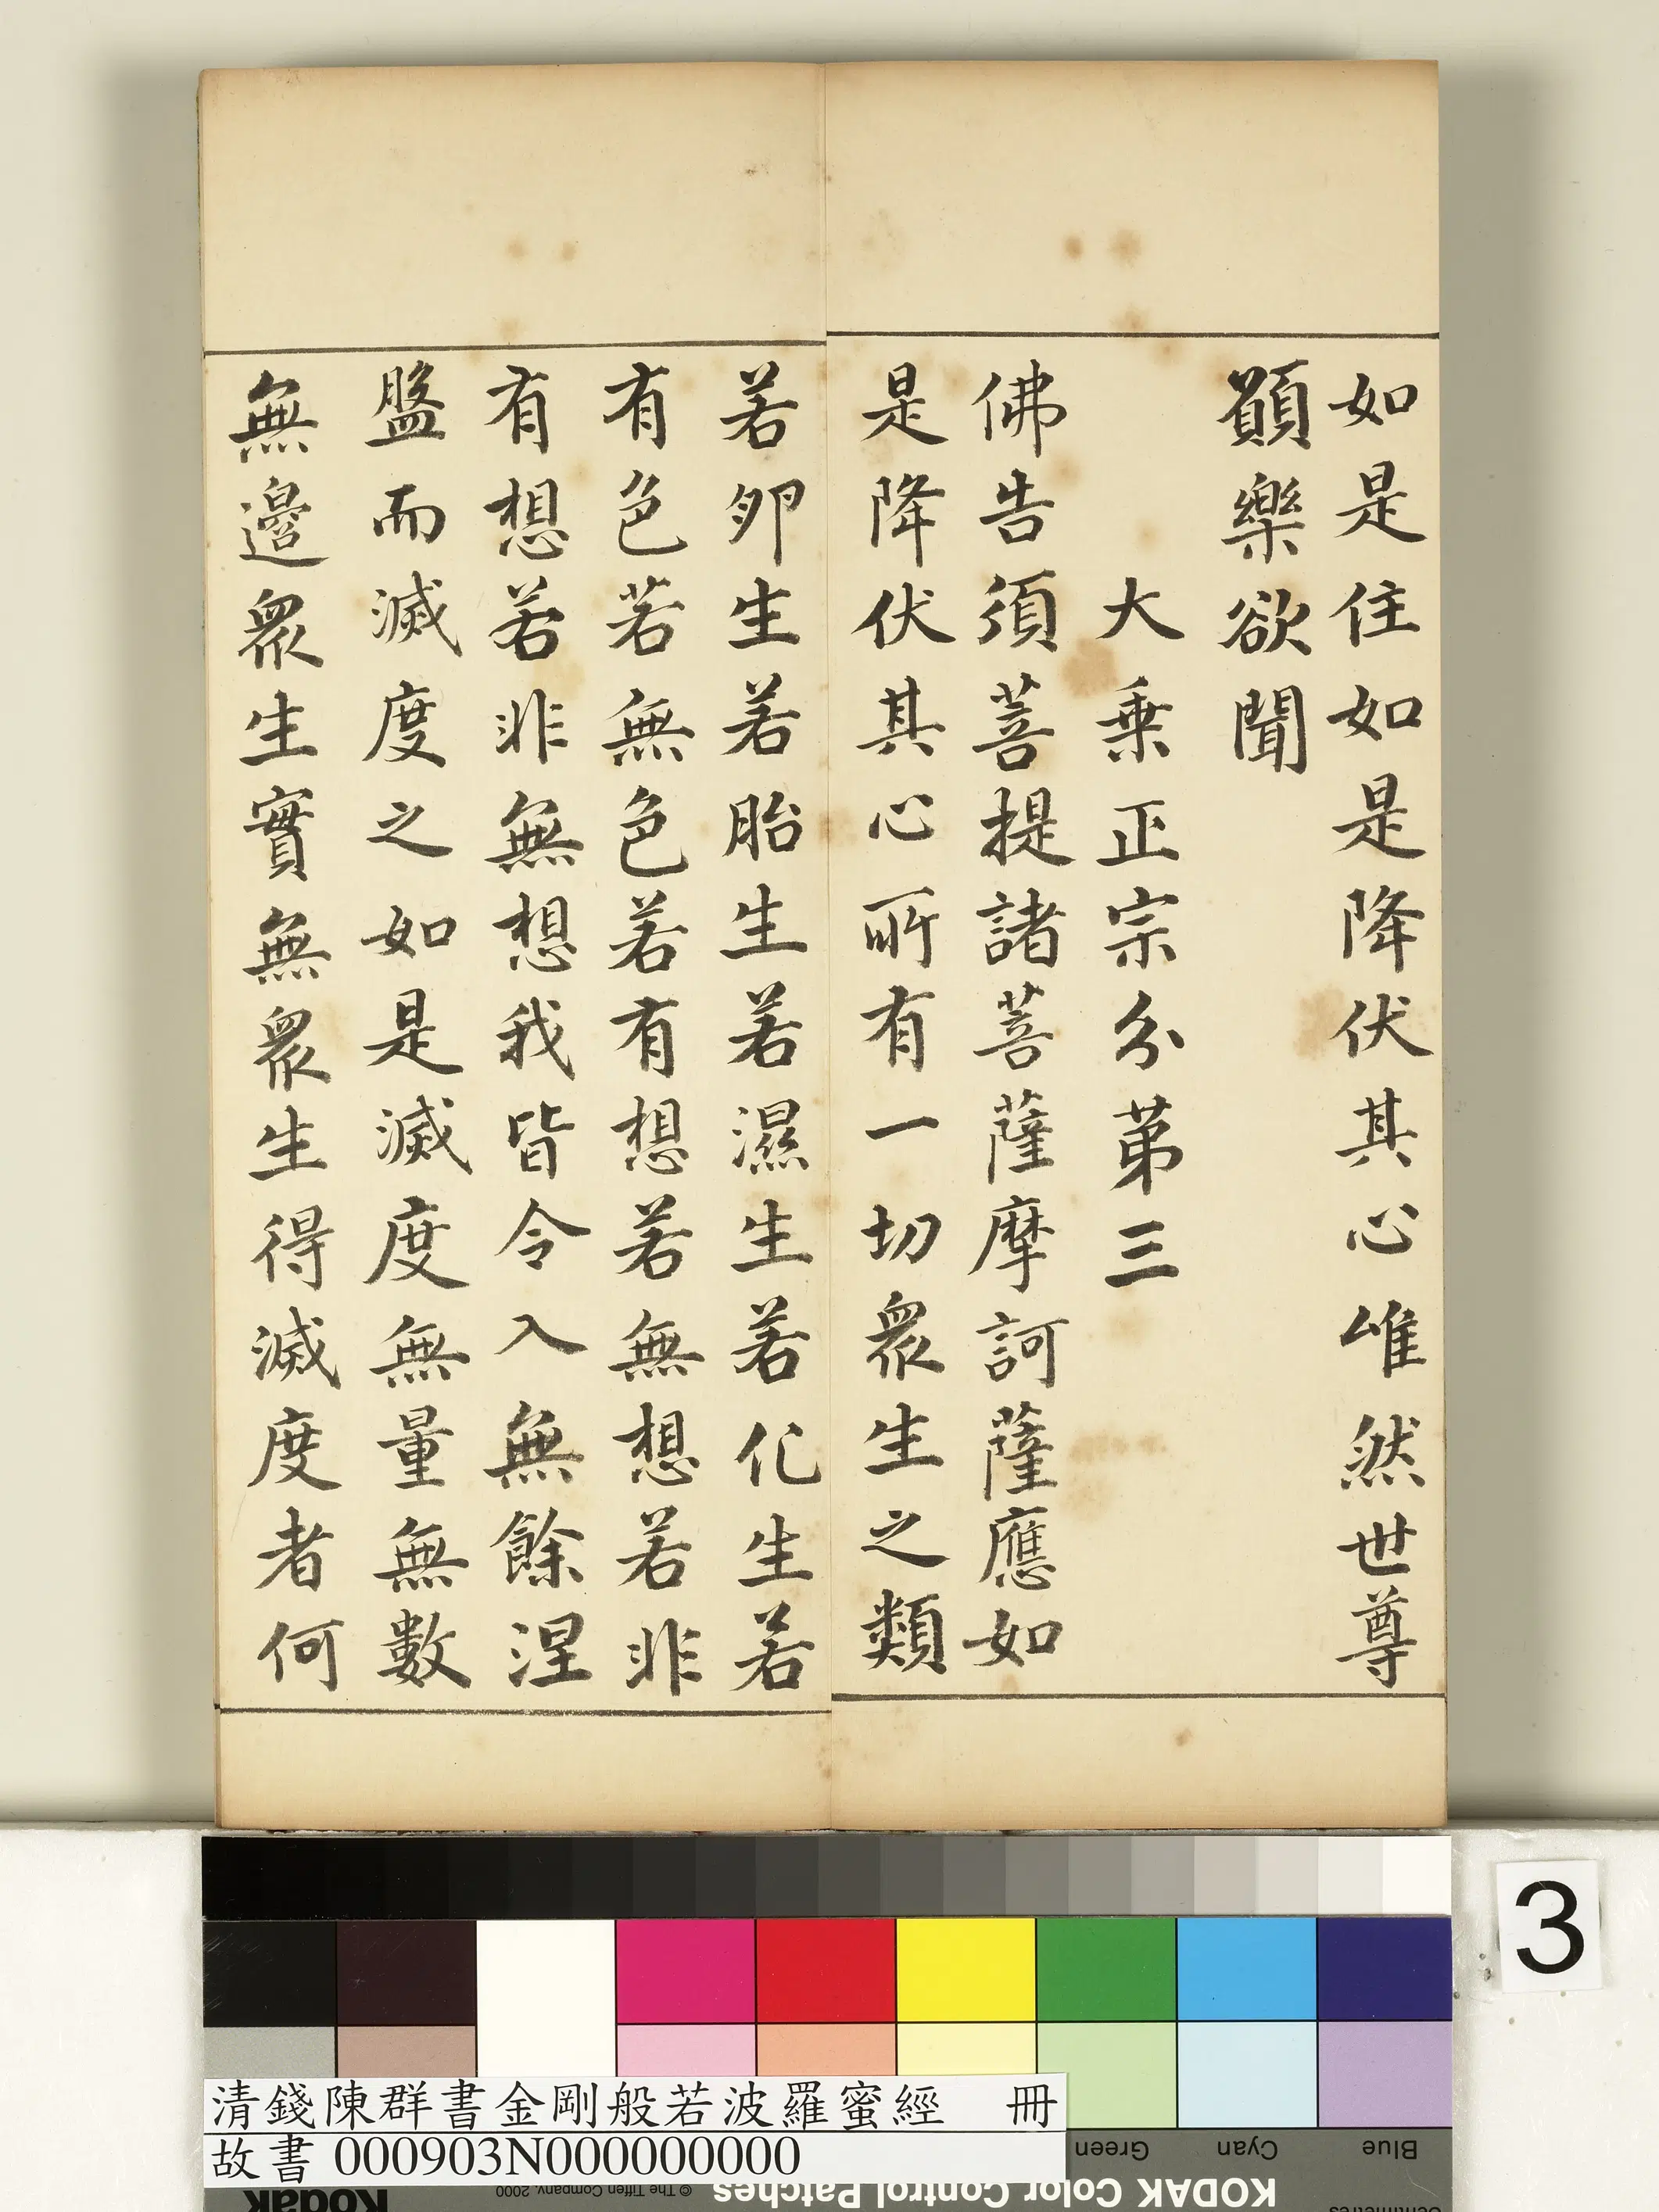 如是住如是降伏其心唯然世尊
願樂欲聞
大乗正宗分苐三
佛告須菩提諸菩薩摩訶薩應如
是降伏其心所有一切眾生之類
若卵生若胎生若濕生若化生若
有色若無色若有想若無想若非
有想若非無想我皆令入無餘涅
盤而滅度之如是滅度無量無數
無邊眾生實無眾生得滅度者何
3
清錢陳群書金剛般若波羅蜜經 冊
故書 000903N000000000
Green Cyan Blue
Kodak © The Tiffen Company, 2000 KODAK Color Control Patches Centimetres